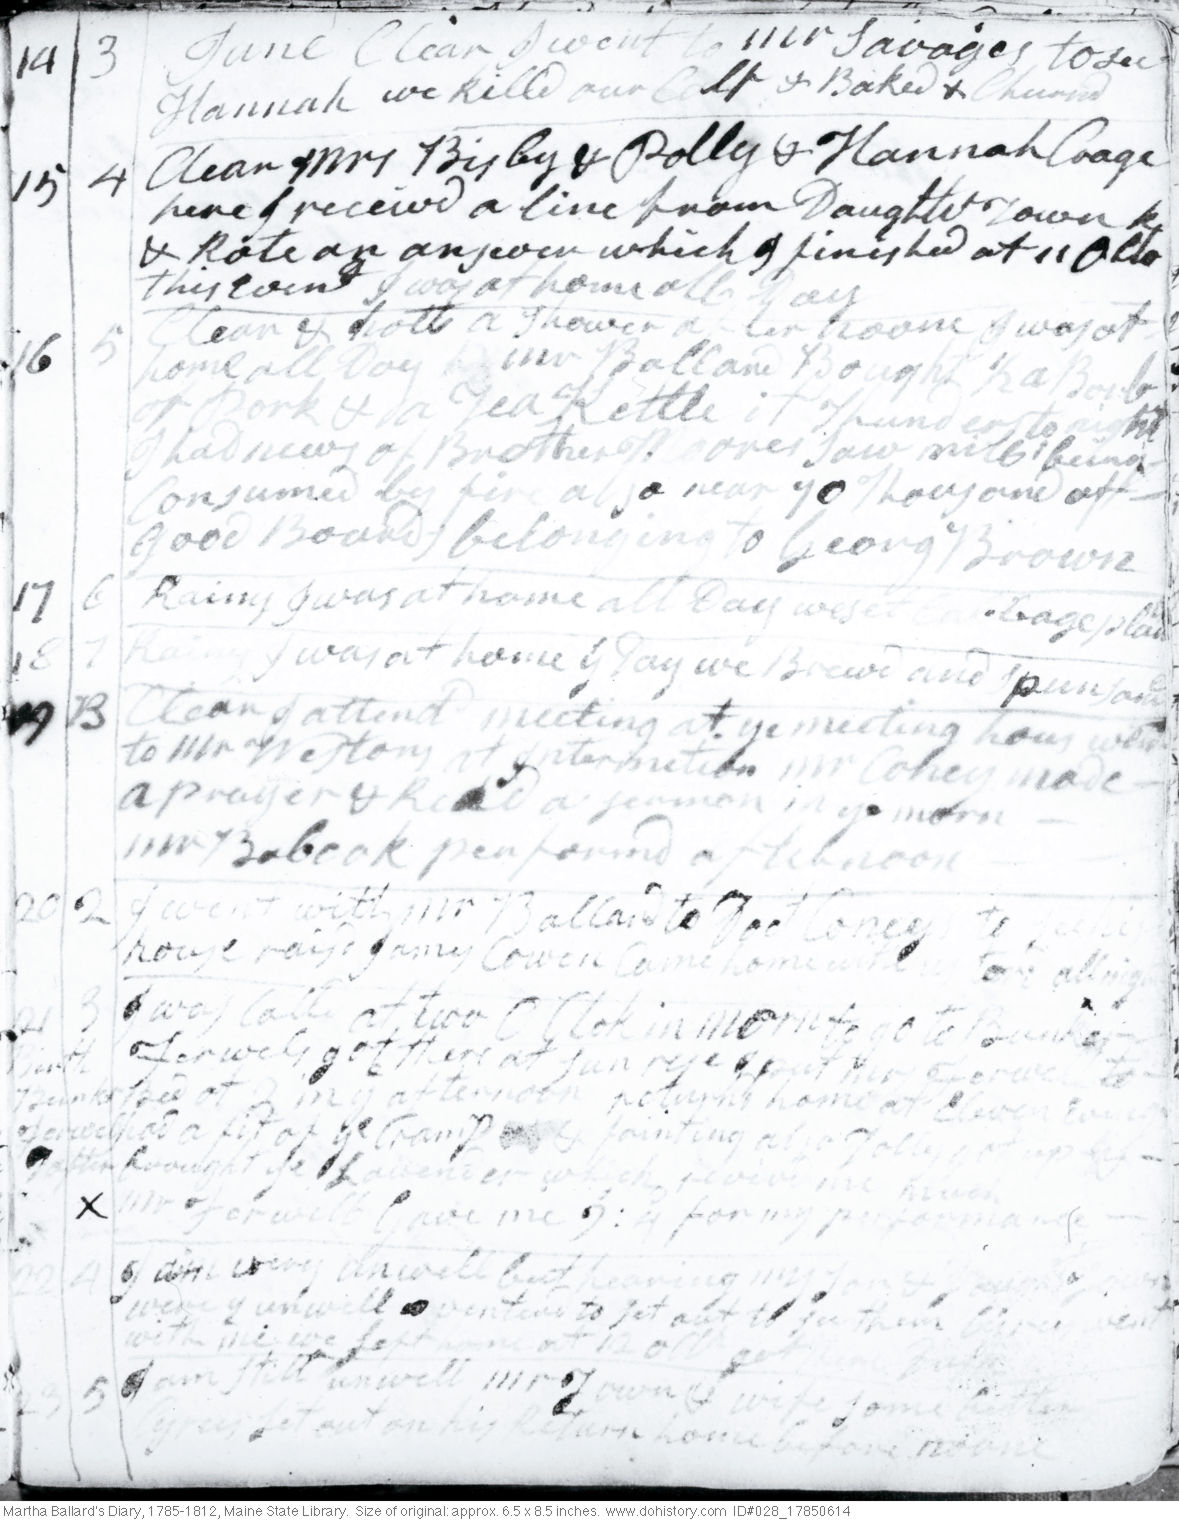 14 3 June Clear I went to mr Savages to see
Hannah we killd our Calf & Baked & Churnd
15 4 Clear Mrs Bisby & Polly & Hannah Coage
here I receivd a line from Daught Town
& Rote an answer which I finished at 11 O Clo
this Even I was at home all Day
16 5 Clear & hott a Shower after noone I was at
home all Day mr Ballard Bought a
of Pork & a Tea Kettle it Thunders to night
I had news of Brother Moores Saw mill being
Consumed by fire also near 90 Thousand of
good Boards belonging to Georg Brown
17 6 Rainy I was at home all Day we set Cabbage plan
18 7 Rainy I was at home ye Day we Brewd and spun som
19 B Clear I attend meeting at ye meeting hous went
to mr Westons at Intermetion mr Coney made
a prayer & Read a sermon in ye morn
mr Babcock performd afternoon
20 2 I went with mr Ballard to Coneys to see his
house raisd Jamy Cowen Came home with us all night
21 3 I was Calld at two O Clok in morn to go to
Birth Ferwels got there at sun rise I put mrs Ferwel to
Bunks Bed at 2 in ye afternoon returnd home at Eleven Evin
Ferwel had a fit of ye Cramp & fainting also
Dafter brought ye Lavender which me much
X mr Ferwell Gave me for my performance
22 4 I am very unwell but hearing my Son & Daught Town
were unwell ventured to set out to see them Cyrus went
with me we left home at 12 O Clk got
23 5 I am still unwell mr Town & wife some better
Cyrus set out on his Return home before noone
Martha Ballard's Diary, 1785-1812, Maine State Library. Size of original: approx. 6.5 x 8.5 inches. www.dohistory.com ID#028_17850614